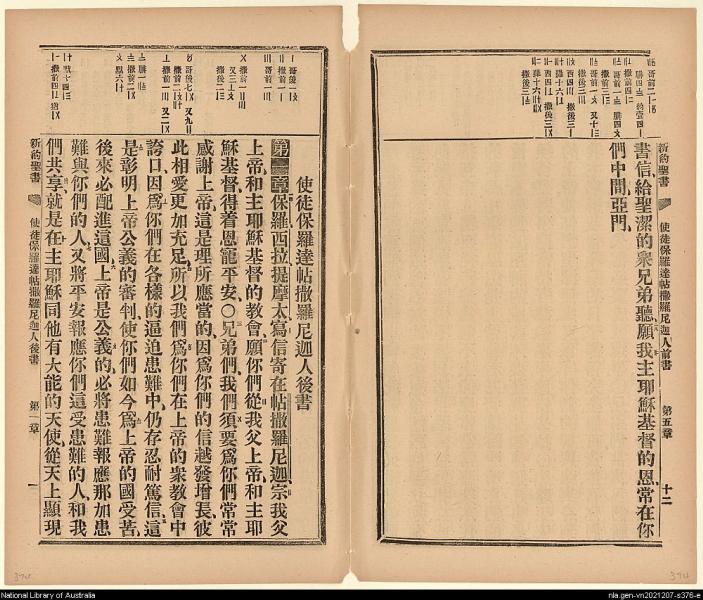 新約聖書
使徒保羅達帖撒羅尼迦人前書
第五章
十二
書信、給聖潔的衆兄弟聽、願我主耶穌基督的恩、常在你
們中間、亞門、
使徒保羅達帖撒羅尼迦人後書
第一章保羅西拉提摩太寫信寄在帖撒羅尼迦宗我父
上帝、和主耶穌基督的教會、願你們從我父上帝、和主耶
穌基督、得着恩寵平安〇兄弟們、我們須要爲你們常常
感謝上帝、這是理所應當的、因爲你們的信越發增長、彼
此相愛更加充足、所以我們爲你們在上帝的衆教會中
誇口、因爲你們在各樣的逼迫患難中、仍存忍耐篤信、這
是彰明上帝公義的審判、使你們如今爲上帝的國受苦、
後來必配進這國、上帝是公義的、必將患難報應那加患
難與你們的人、又將平安報應你們這受患難的人、和我
們共享、就是在主耶穌同他有大能的天使、從天上顯現
新約聖書
使徒保羅達帖撒羅尼迦人後書
第一章
一
374
374
National Library of Australia
nla.gen-vn2021207-s376-e